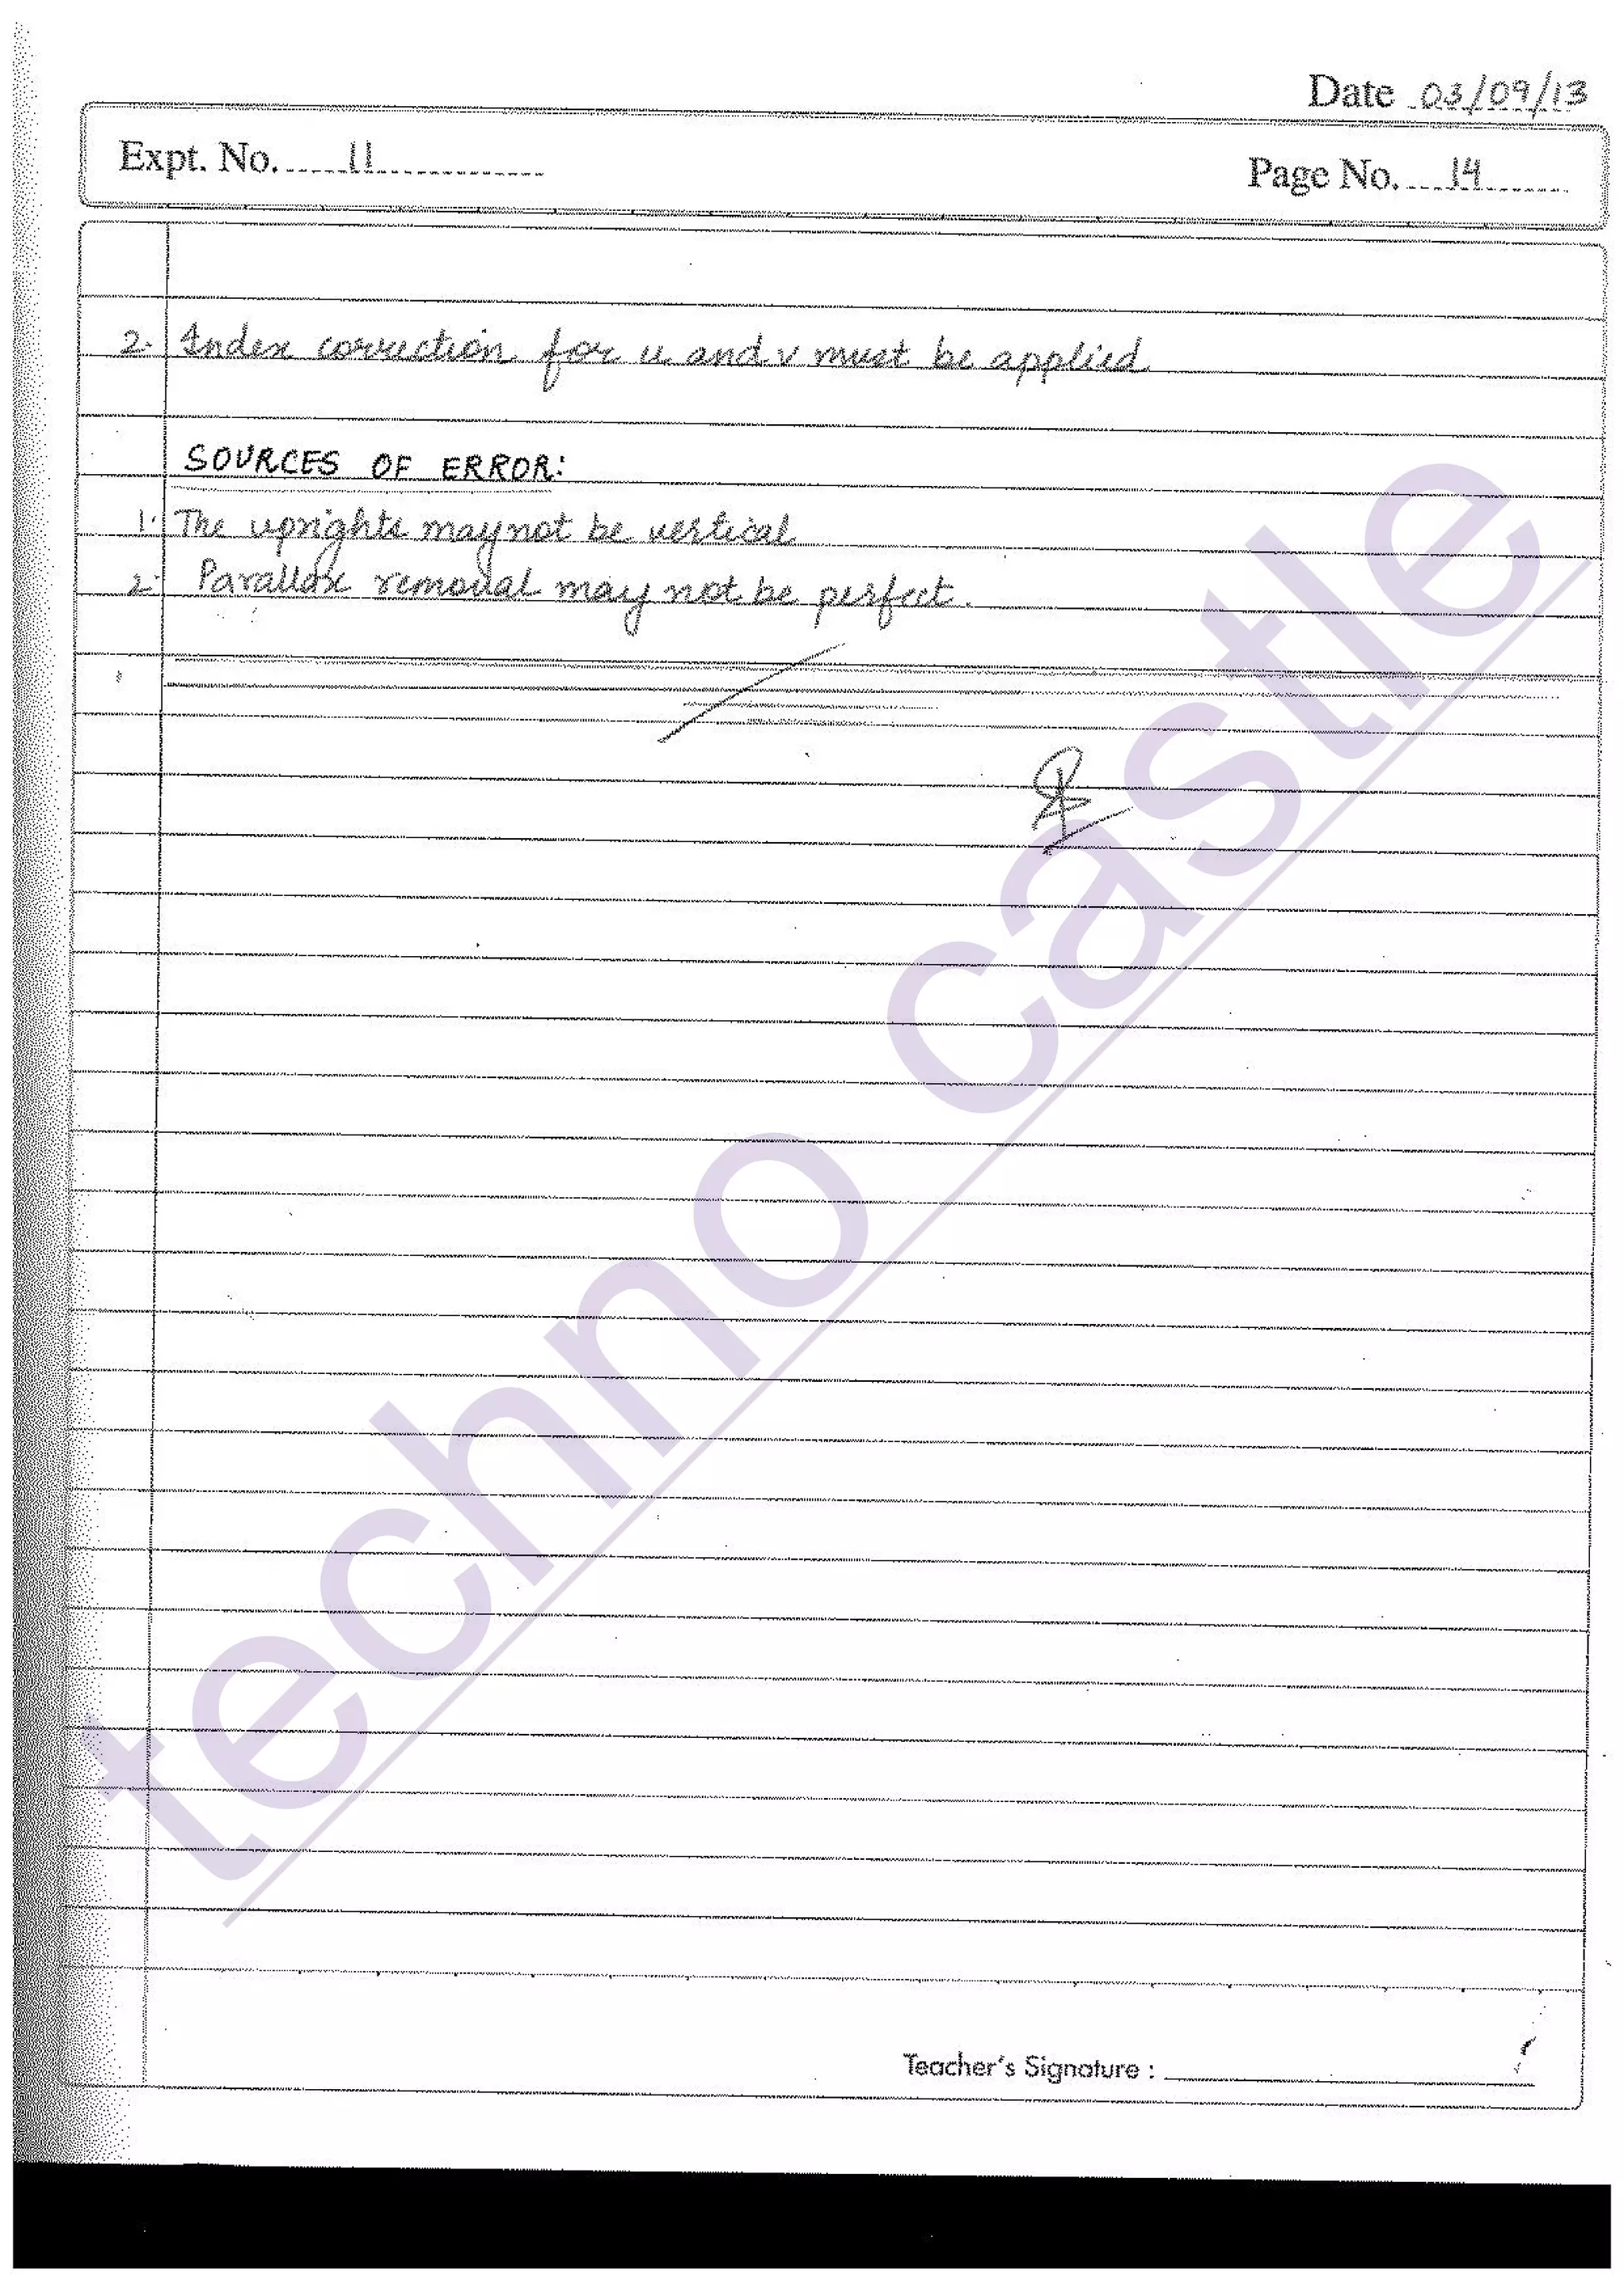 Date 03/09/13
Expt. No. 11
Page No. 14
2. Index correction for u and v must be applied.
SOURCES OF ERROR:
1. The uprights may not be vertical
2. Parallax removal may not be perfect.
techno castle
Teacher's Signature :